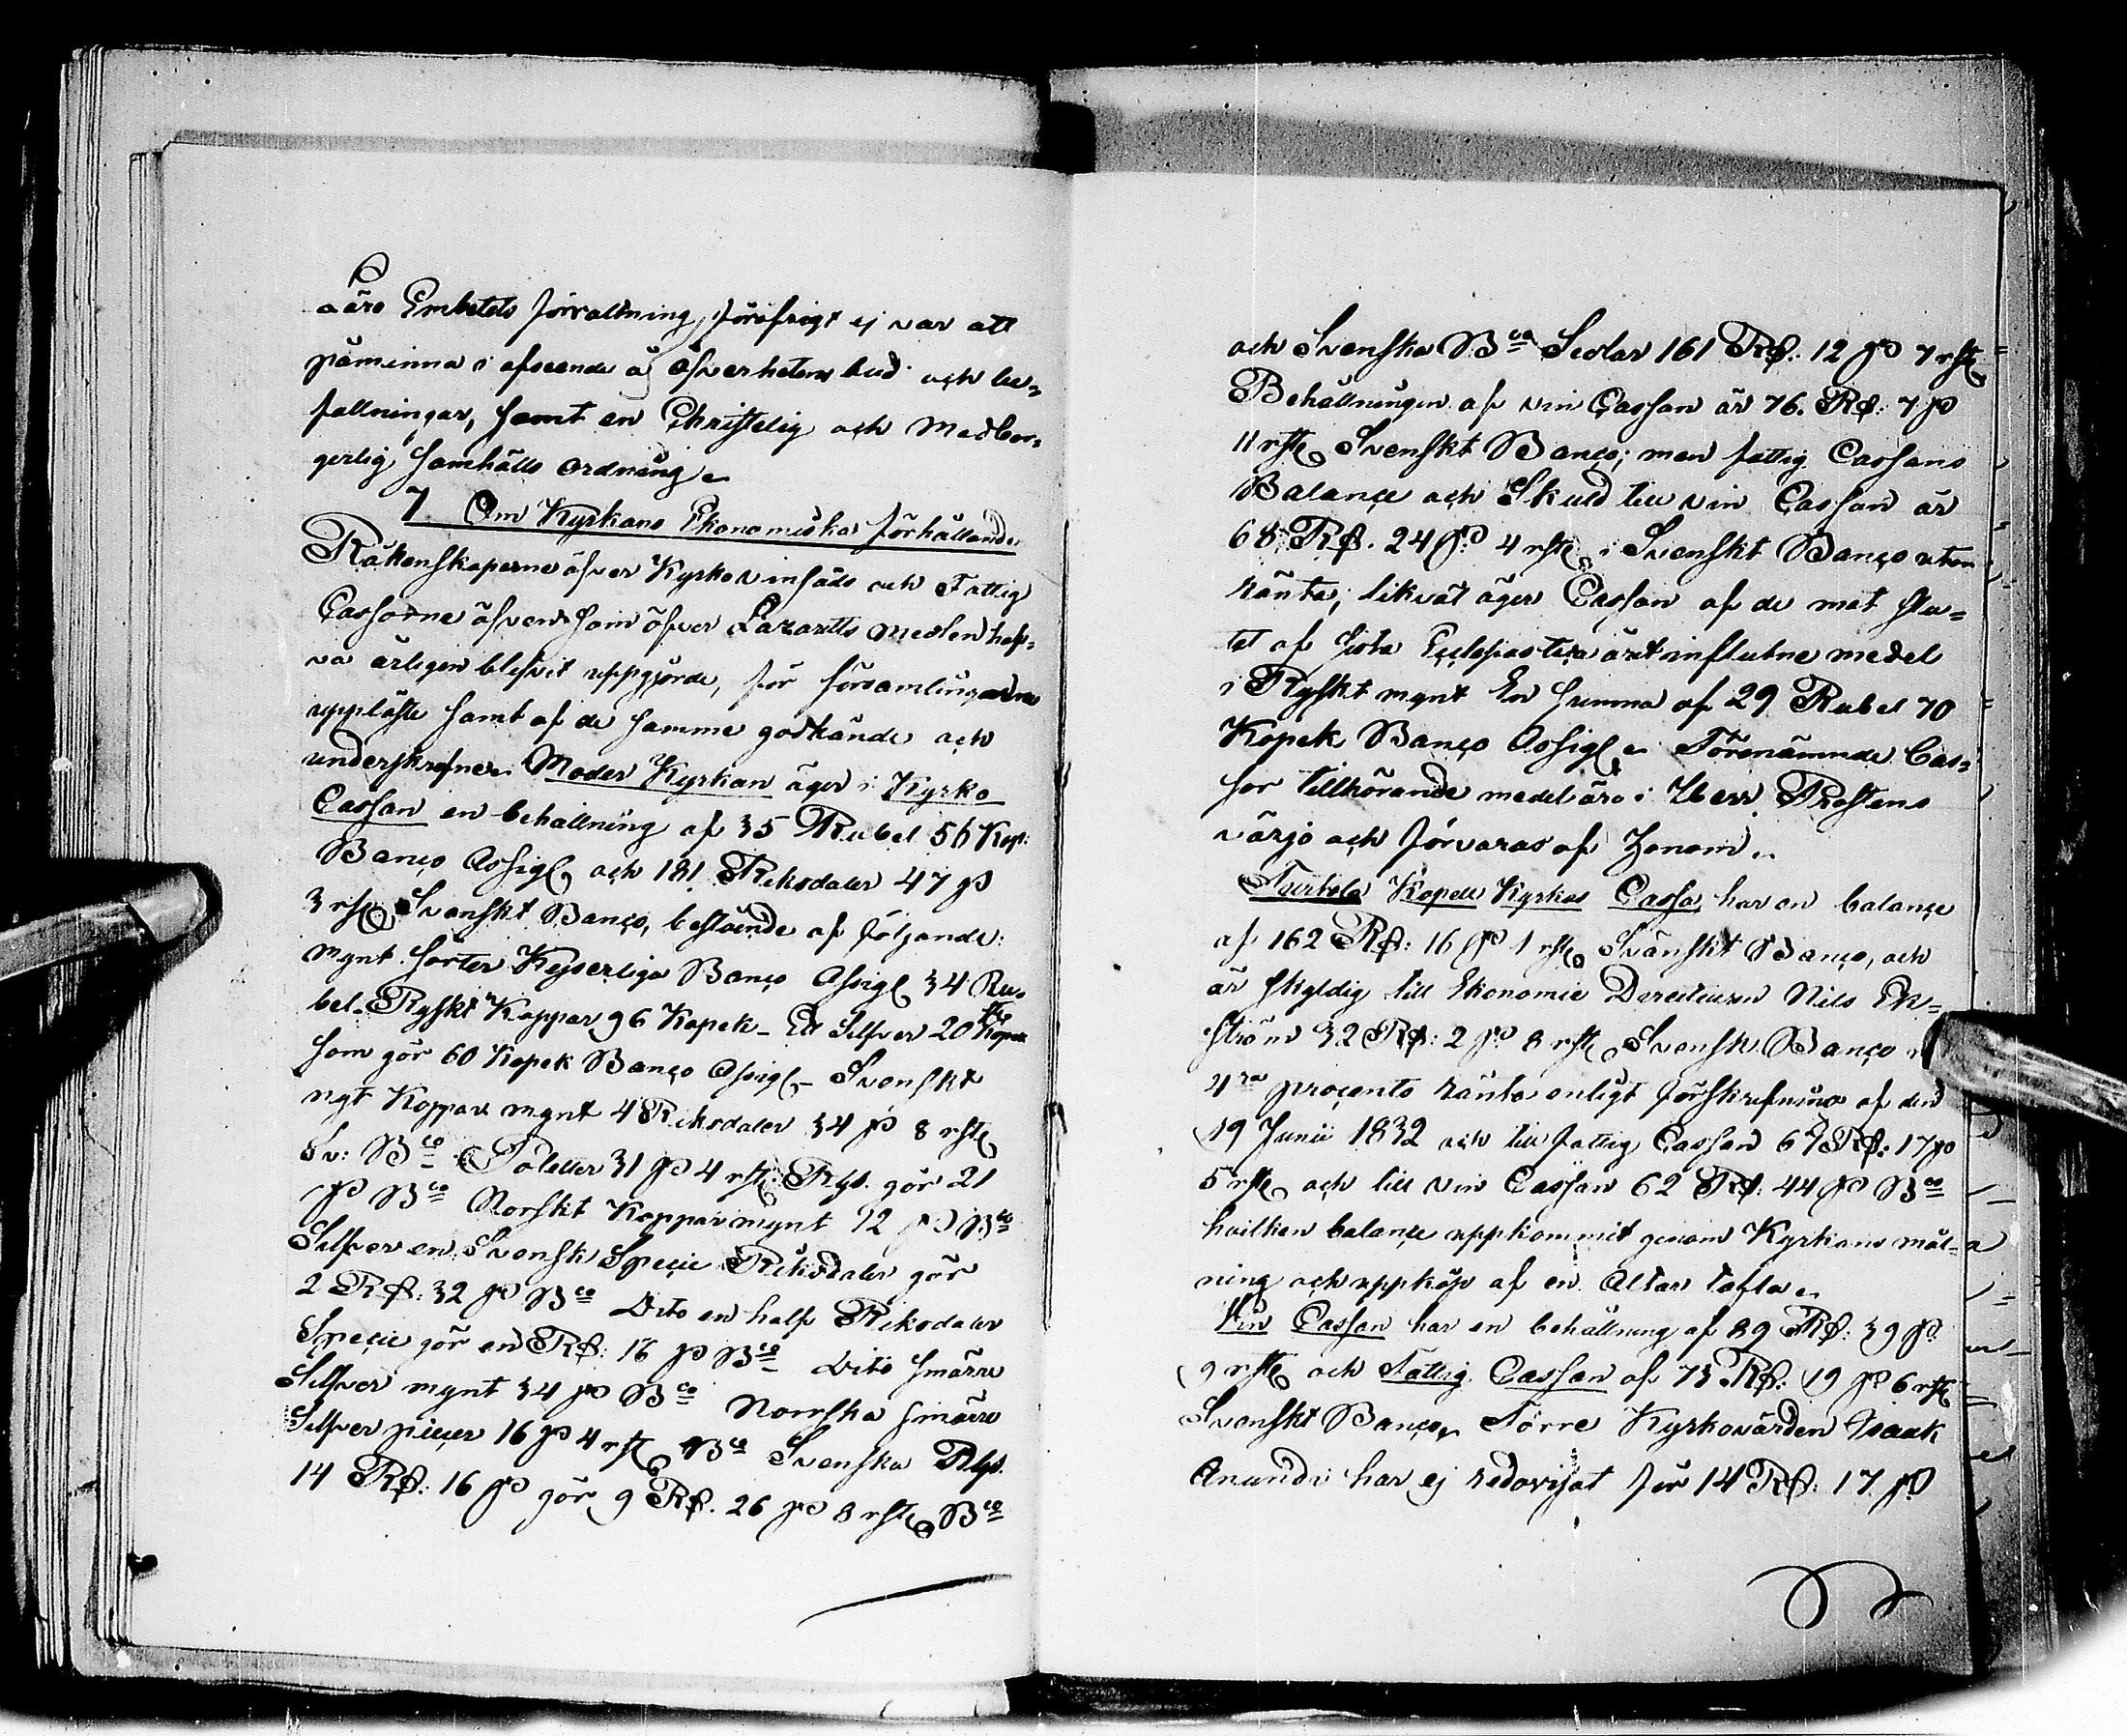 äro Embetets förvaltning, föröfrigt ej var att
påminna i afseende å öfverhetens bud och be-
fallningar, samt en Christelig och Medbor-
gerlig Samhälls ordning.
7. Om Kyrkans Ekonomiska förhållande
Räkenskaperne öfver Kyrko vinsäds och Fattig
Cassorne äfven som öfver Lazaretts medlen haf-
va årligen blefvit uppgjorde, för församlingarne
uppläste samt af de samme godkände och
underskrefne. Moder Kyrkan äger i Kyrko
Cassan en behållning af 35 Rubel 56 Kop:
Banco Assigl och 181 Riksdaler 47 sk
3 rst Svenskt Banco, bestående af följande:
Mynt sorter Kejserliga Banco Assigl 34 Ru-
bel. Ryskt Koppar 96 Kopek - Ett Silfver 20 Kopek
som gör 60 Kopek Banco Assigl - Svenskt
mgt Koppar mynt 4 Riksdaler 34 sk 8 rst
Sv: Bco Poletter 31 sk 4 rst Rgs. gör 21
sk Bco Norskt Koppar mynt 12 sk Bco
Silfver en Svensk Specie Riksdaler gör
2 Rd: 32 sk Bco Dito en half Riksdaler
Specie gör en Rd: 16 sk Bco Dito smärre
Silfver mynt 34 sk Bco Norrska smärre
Silfver piecer 16 sk 4 rst Bco Svenska Rgs.
14 Rd: 16 sk gör 9 Rd. 26 sk 8 rst Bco
och Svenska Bco Sedlar 161 Rd: 12 sk 7 rst
Behållningen af vin Cassan är 76. Rd: 7 sk
11 rst Svenskt Banco; men fattig Cassans
Balance och Skuld till vin Cassan är
68 Rd. 24 sk 4 rst i Svenskt Banco utan
ränta; likväl äger Cassan af de mot slu-
tet af sista Ecclesiastica året influtne medel
i Ryskt mynt En summa af 29 Rubel 70
Kopek Banco Assigl. Förenämnde Cas-
sor tillhörande medel äro i Herr Prostens
värjo och förvaras af honom.
Turtola Kapell Kyrkas Cassa har en balance
af 162 Rd: 16 sk 1 rst Svänskt Banco, och
är skyldig till Ekonomie Directeuren Nils Ek-
ström 32 Rd: 2 sk 8 rst Svensk Banco
4ra procents ränta enligt förskrifning af den
19 Junii 1832 och till fattig Cassan 67 Rd: 17 sk
5 rst och till vin Cassan 62 Rd: 44 sk Bco
hvilken balance uppkommit genom Kyrkans mål-
ning och uppköp af en Altar tafla.
Vin Cassan har en behållning af 89 Rd: 39 sk
9 rst och Fattig Cassan af 73 Rd: 19 sk 6 rst
Svenskt Banco. Förre Kyrkovärden Isaak
Anundi har ej redovisat för 14 Rd: 17 sk